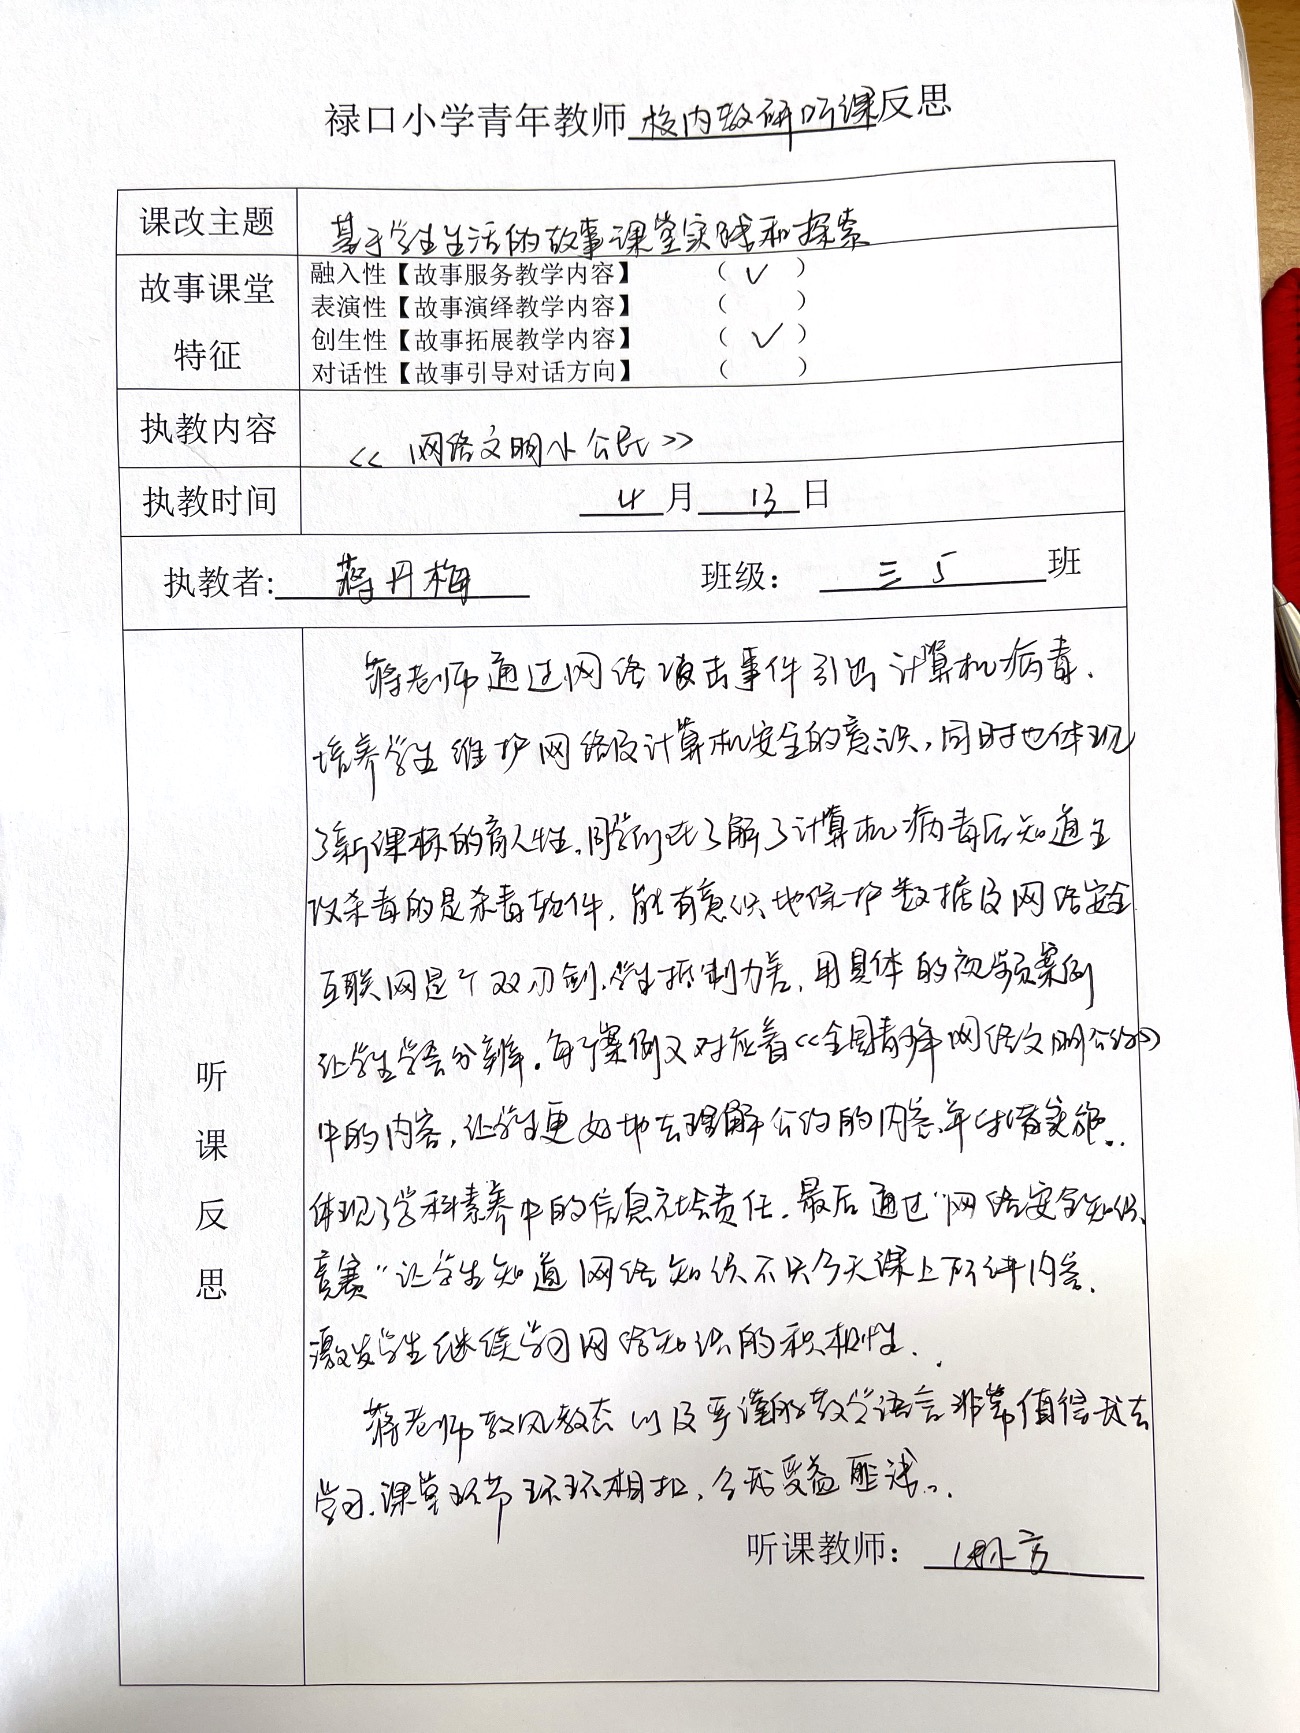 禄口小学青年教师校内教研听课反思
课改主题
基于学生生活的故事课堂实践和探索
故事课堂
特征
融入性【故事服务教学内容】 （ ✓ ）
表演性【故事演绎教学内容】 （ ）
创生性【故事拓展教学内容】 （ ✓ ）
对话性【故事引导对话方向】 （ ）
执教内容
《网络文明小公民》
执教时间
4月13日
执教者: 蒋丹梅 班级： 三5班
听课反思
蒋老师通过网络攻击事件引出计算机病毒.
培养学生维护网络及计算机安全的意识,同时也体现
了新课标的育人性.同学们在了解了计算机病毒后知道主
攻杀毒的是杀毒软件,能有意识地保护数据及网络安全
互联网是个双刃剑,学生抵制力差,用具体的视频案例
让学生学会分辨.每个案例又对应着《全国青少年网络文明公约》
中的内容,让学生更好地去理解公约的内容,并付诸实施.
体现了学科素养中的信息社会责任.最后通过"网络安全知识
竞赛"让学生知道网络知识不只今天课上所讲内容.
激发学生继续学习网络知识的积极性.
蒋老师教风教态以及严谨的教学语言非常值得我去
学习.课堂环节环环相扣,令我受益匪浅.
听课教师：